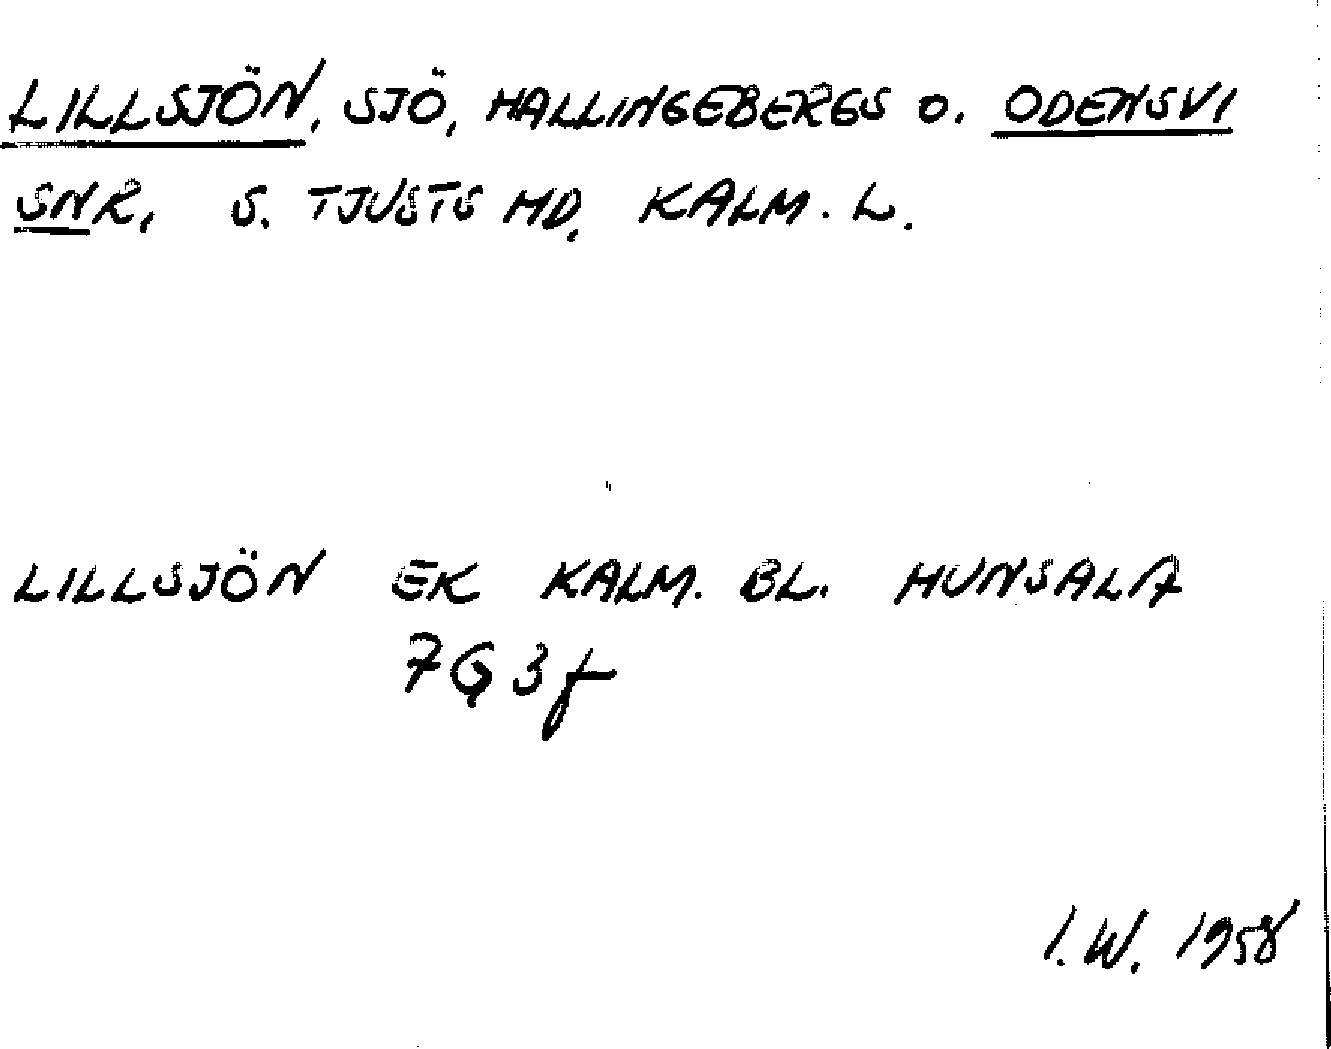 LILLSJÖN, SJÖ, HALLINGEBERGS O. ODENSVI
SNR, S. TJUSTS HD, KALM. L.
LILLSJÖN EK KALM. BL. HUNSALA
7G3f
I.W. 1958